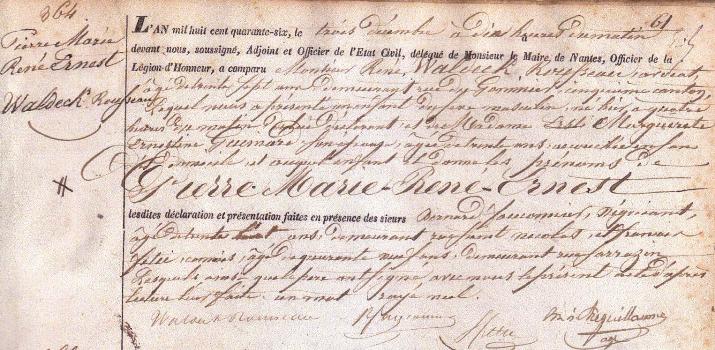 364
Pierre Marie
René Ernest
Waldeck Rousseau
61
L'AN mil huit cent quarante-six, le trois décembre à dix heures du matin
devant nous, soussigné, Adjoint et Officier de l'Etat Civil, délégué de Monsieur le Maire, de Nantes, Officier de la
Légion-d'Honneur, a comparu Monsieur René, Waldeck, Rousseau, avocat,
âgé de trente sept ans demeurant rue du cinquième canton,
lequel nous a présenté un enfant du sexe masculin, né hier à quatre
heures du matin, de lui déclarant et de Madame Marguerite
Ernestine son épouse, âgée de trente ans, accouchée en son
domicile, et auquel enfant il donne les prénoms de
Pierre-Marie-René-Ernest
lesdites déclaration et présentation faites en présence des sieurs Bernard négociant,
âgé de trente ans, demeurant rue et François
commis, âgé de quarante neuf ans, demeurant rue
Lesquels ainsi que le père ont signé, avec nous le présent acte, après
lecture leur faite. un mot rayé nul.
Waldeck Rousseau